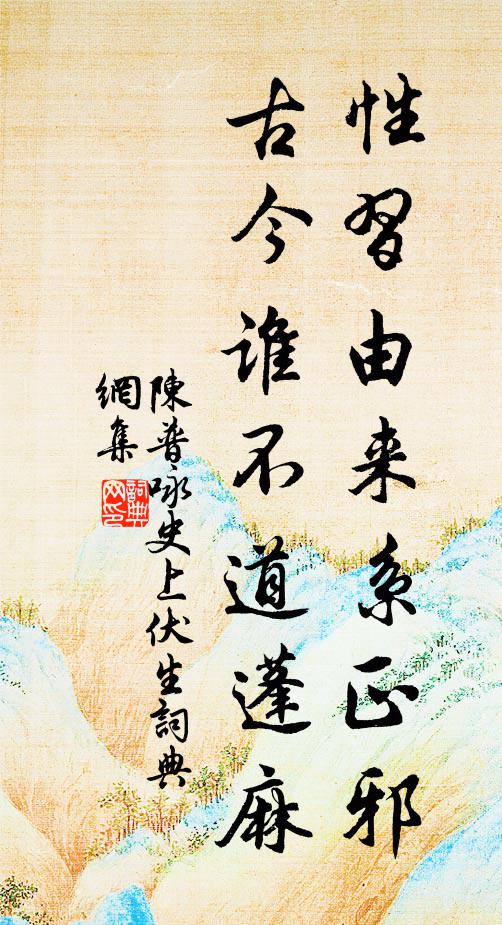 性習由来系正邪
古今誰不道蓬麻
陳普咏史上伏生詞典
網集
詞典
网印